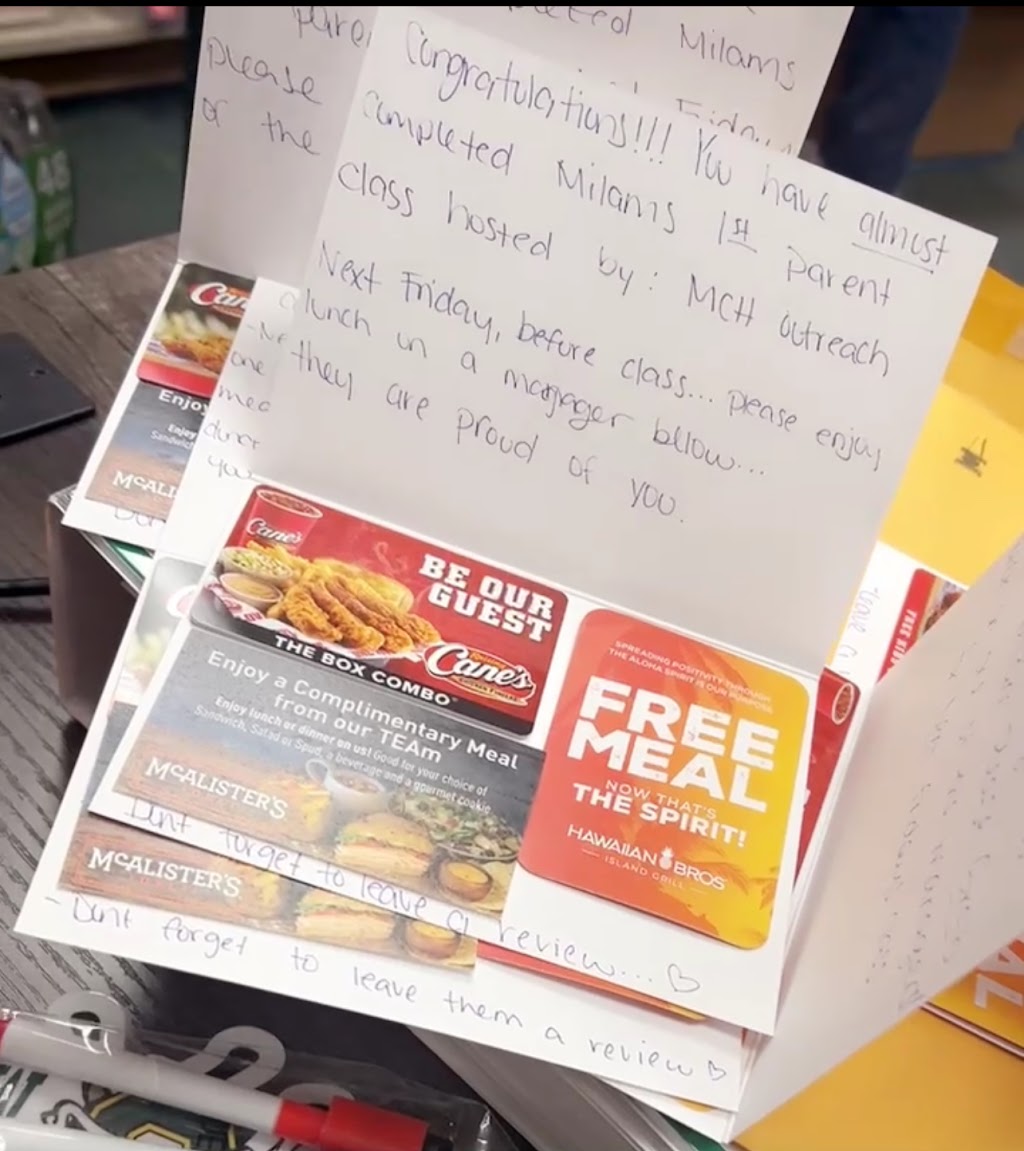 Milams
please
or the
Friday
Congratulations!!! You have almost
completed Milams 1st parent
class hosted by: MCH outreach
Next Friday, before class... please enjoy
lunch on a manager bellow...
they are proud of you.
one
48
Enjoy
Enjoy
Sandwich
MCALI
Cane's
BE OUR
GUEST
Raising
Cane's
CHICKEN FINGERS
THE BOX COMBO
Enjoy a Complimentary Meal
from our TEAm
Enjoy lunch or dinner on us! Good for your choice of
Sandwich, Salad or Spud, a beverage and a gourmet cookie
MCALISTER'S
SPREADING POSITIVITY THROUGH
THE ALOHA SPIRIT IS OUR PURPOSE
FREE
MEAL
NOW THAT'S
THE SPIRIT!
HAWAIIAN BROS
ISLAND GRILL
Dont forget to leave a review... ♡
MCALISTER'S
- Dont forget to leave them a review ♡
FREE KIDS